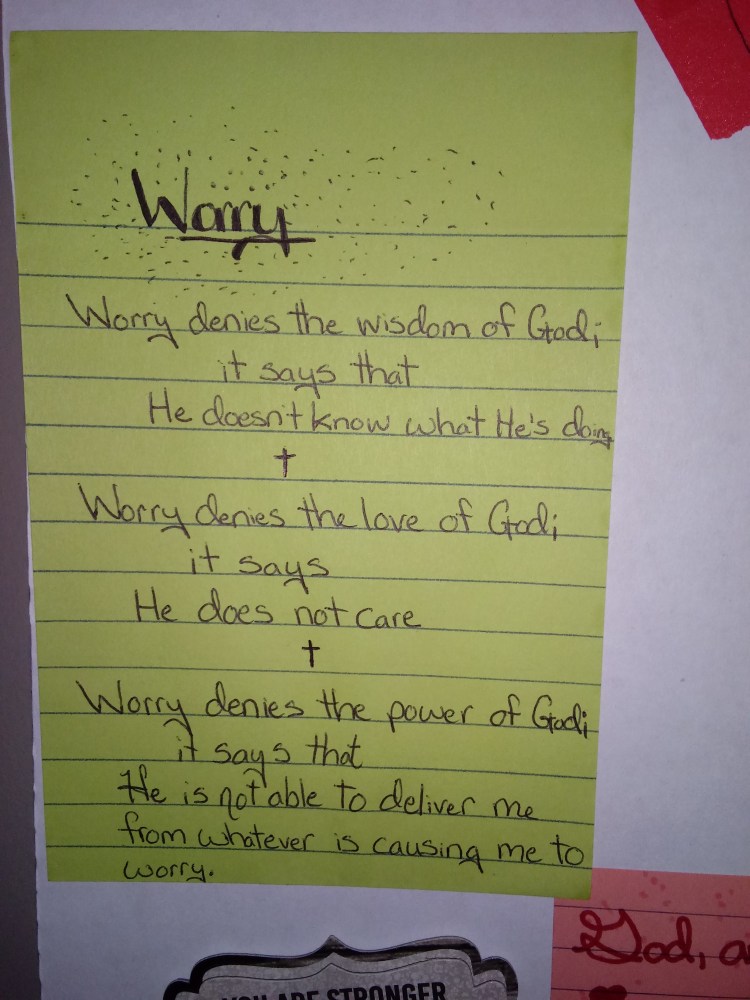 Worry
Worry denies the wisdom of God;
it says that
He doesn't know what He's doing
Worry denies the love of God;
it says
He does not care
Worry denies the power of God;
it says that
He is not able to deliver me
from whatever is causing me to
worry.
God, a
YOU ARE STRONGER